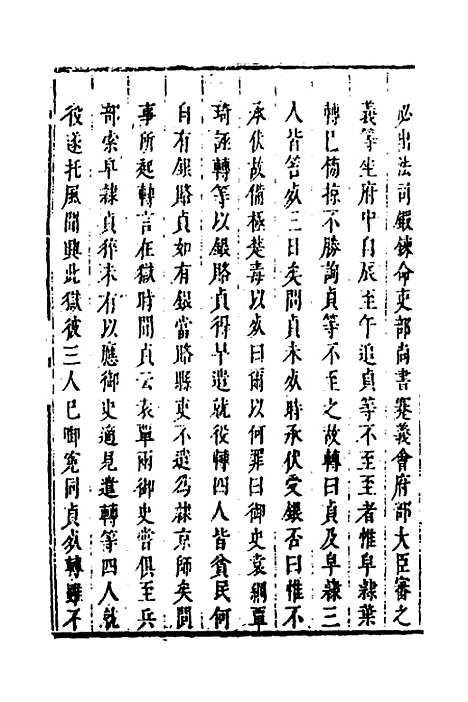 必出法司鍛鍊命吏部尚書蹇義會府部大臣審之
義等坐府中自辰至午追貞等不至至者惟皁隸葉
轉已備掠不勝詢貞等不至之故轉曰貞及皁隸三
人皆笞死三日矣問貞未死時承伏受銀否曰惟不
承伏故備極楚毒以死曰爾以何罪曰御史袁綱覃
珩誣轉等以銀賂貞得早遣就役轉四人皆貧民何
自有銀賂貞如有銀當賂縣吏不遣為隸京師矣問
事所起轉言在獄時聞貞云袁覃兩御史嘗俱至兵
部索皁隸貞猝未有以應御史適見遣轉等四人就
役遂托風聞興此獄彼三人已啣冤同貞死轉雖不